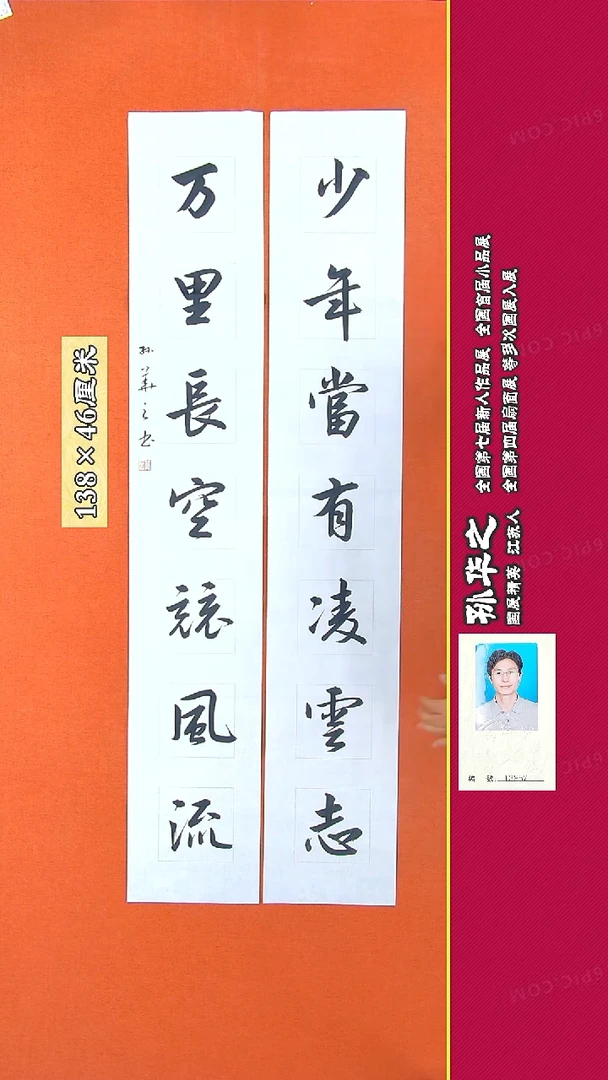 少年當有凌雲志
万里長空競風流
孙華之书
138×46厘米
孙华之
国展精英 江苏人
全国第七届新人作品展 全国首届小品展
全国第四届扇面展 等多次国展入展
编 號
6PIC.COM